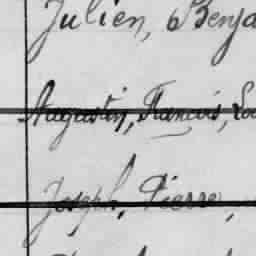 Julien, Benja
Augustin, Francois, Lou
Joseph, Pierre,